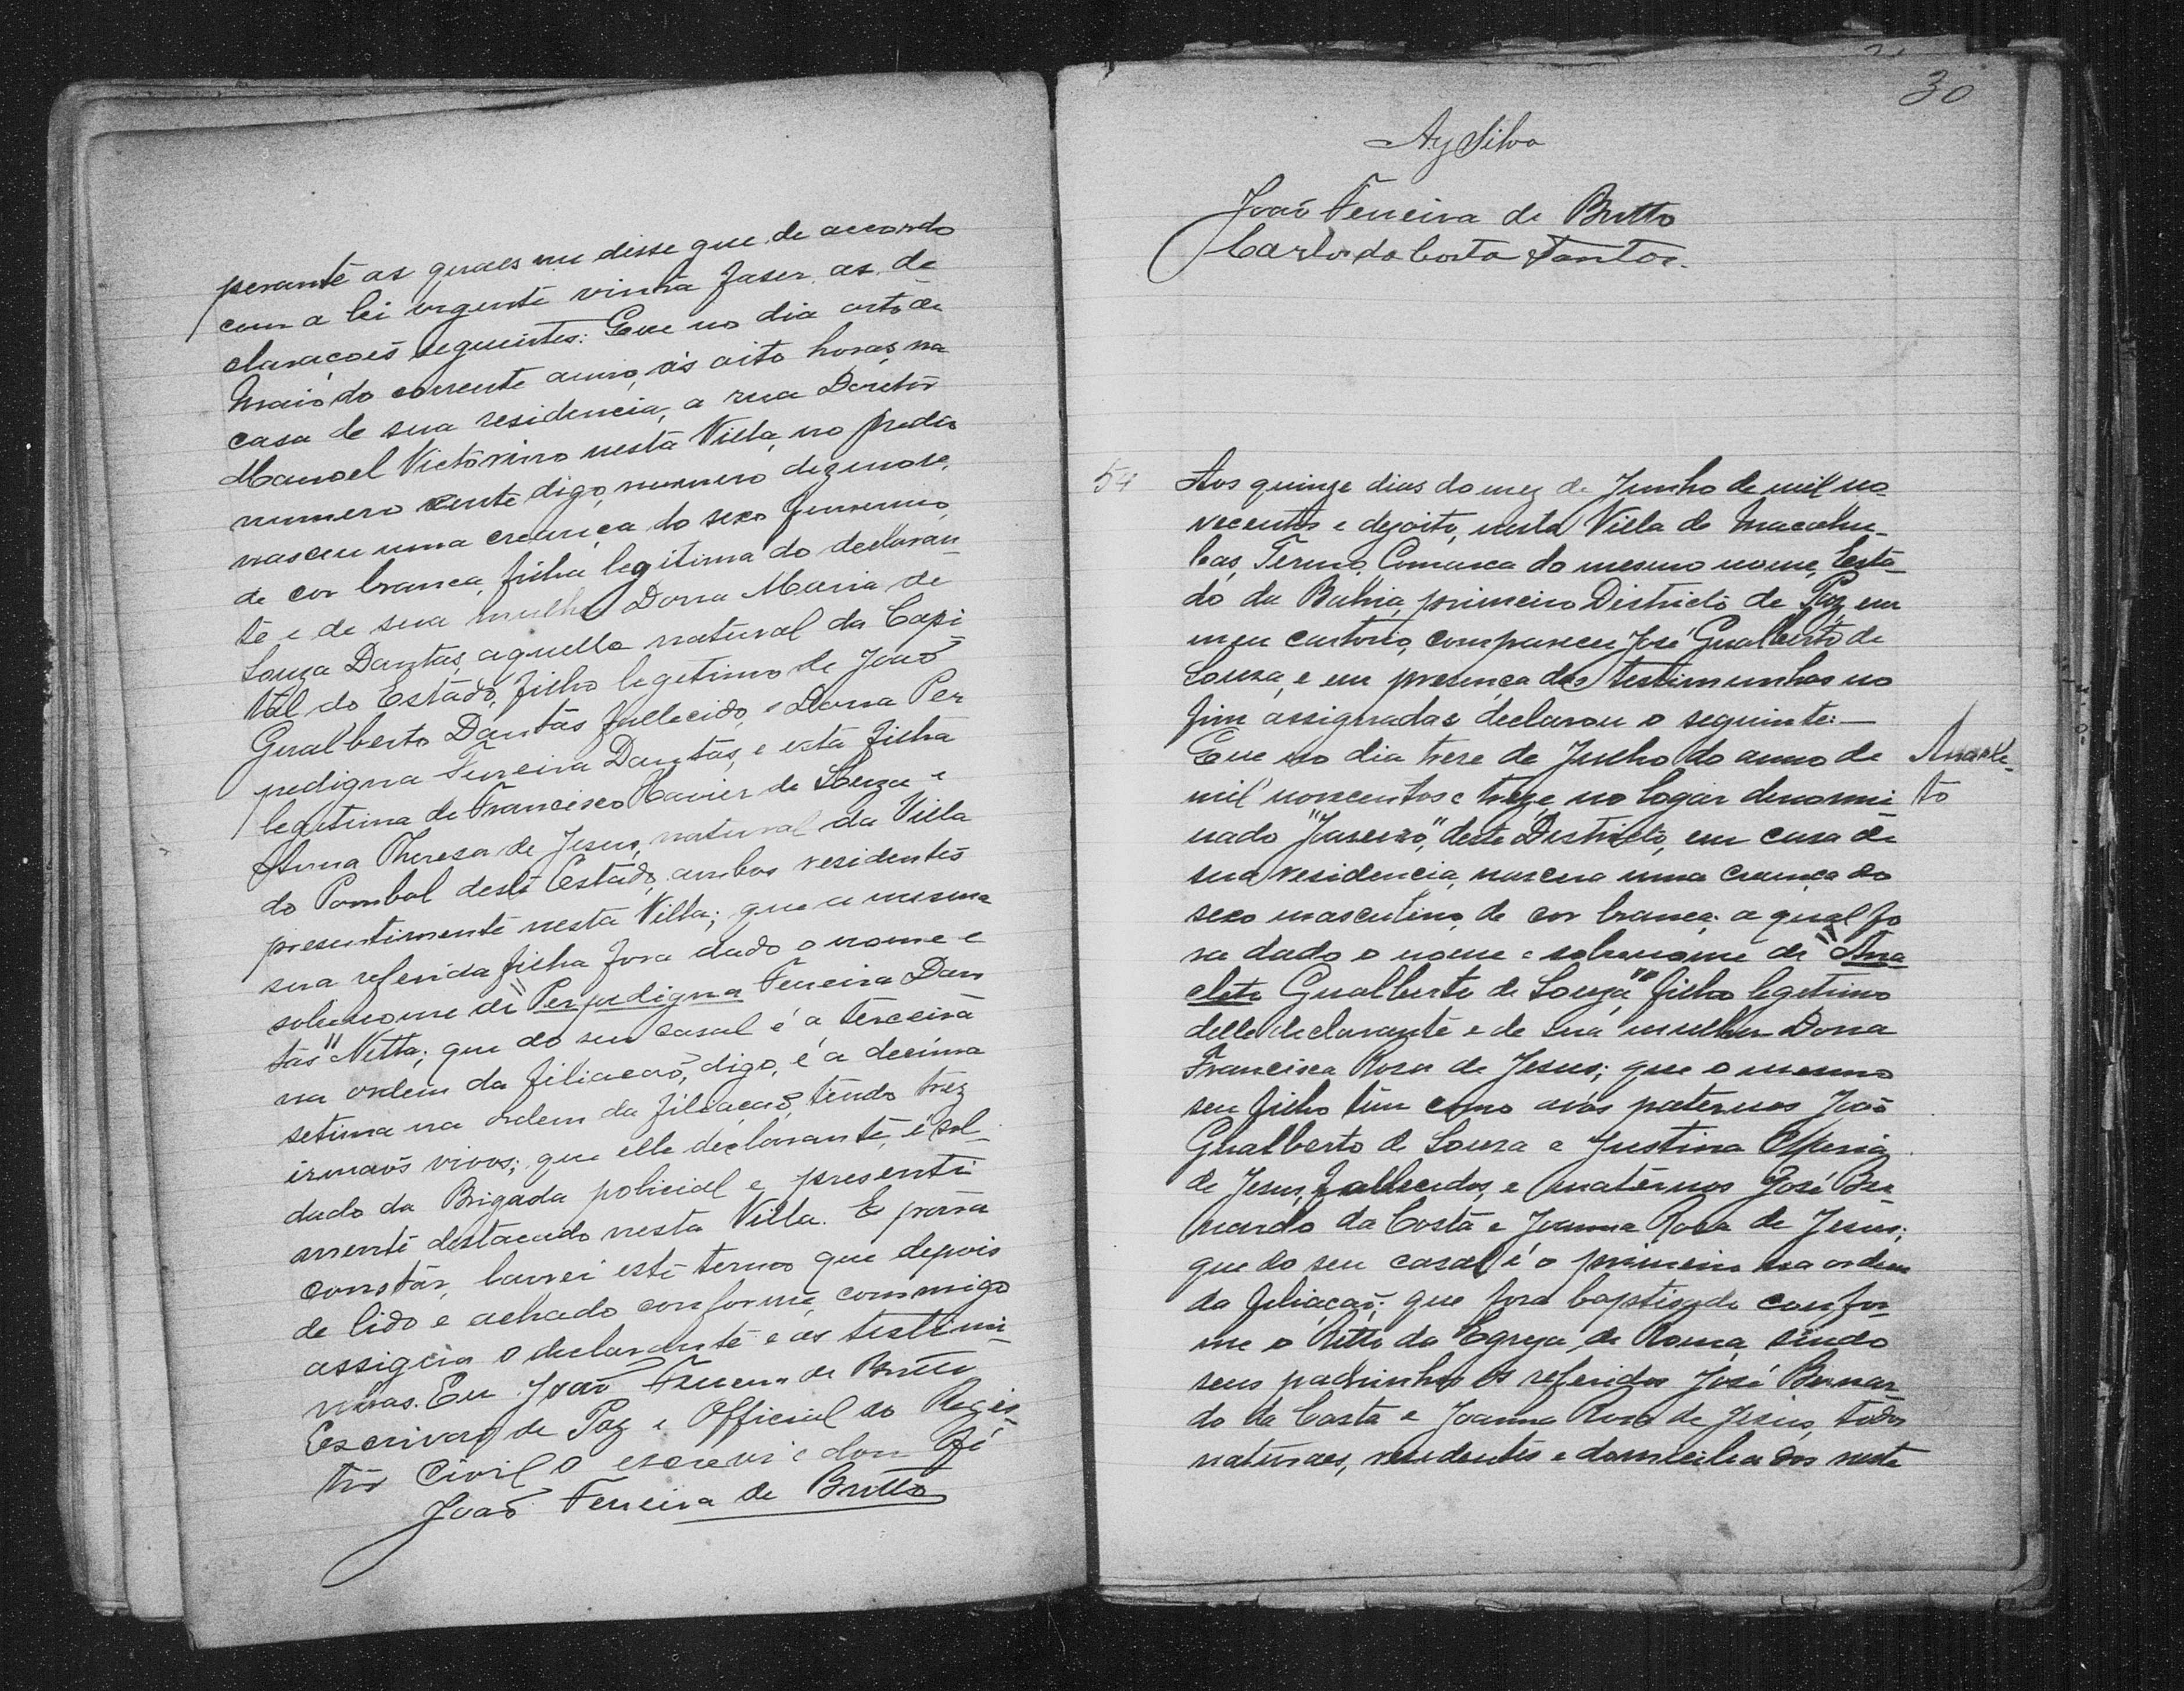 perante as quaes me disse que de accordo
com a lei vigente vinha faser as de
clarações seguintes: Que no dia oito de
Maio do corrente anno, ás oito horas, na
casa de sua residencia, a rua Doutor
Manoel Victorino nesta Villa, no predio
numero vinte digo, numero dezenove,
nasceu uma creança do sexo femenino,
de cor branca, filha legitima do declaran-
te e de sua mulher Dona Maria de
Souza Dantas, aquelle natural da Capi
tal do Estado, filho legitimo de João
Gualberto Dantas, fallecido, e Dona Per
pedigna Ferreira Dantas, e esta filha
legitima de Francisco Xavier de Souza e
Anna Thereza de Jesus, natural da Villa
do Pombal deste Estado, ambos residentes
presentimente nesta Villa; que a mesma
sua referida filha fora dado o nome e
sobrenome de "Perpedigna Ferreira Dan
tas" Netta; que do seu casal é a terceira
na ordem da filiação, digo, é a decima
setima na ordem da filiação, tendo trez
irmãos vivos; que elle declarante, é sol-
dado da Brigada policial e presenti
mente destacado nesta Villa. E para
constar, lavrei este termo que depois
de lido e achado conforme, commigo
assigna o declarante e as testimu-
nhas. Eu João Ferreira de Britto
Escrivão de Paz e Official do Regis
tro Civil o escrevi e dou Fé
João Ferreira de Britto
30
Ay Silva
João Ferreira de Britto
Carlos da Costa Santos.
54 Aos quinze dias do mez de Junho de mil no-
vecentos e dezoito, nesta Villa de Macahu-
bas, Termo, Comarca do mesmo nome, Esta-
do da Bahia, primeiro Districto de Paz em
meu cartorio, compareceu José Gualberto de
Souza, e em presença das testimunhas no
fim assignadas declarou o seguinte:—
Que no dia treze de Julho do anno de
mil novecentos e treze, no logar denomi
nado "Joaseiro," deste Districto, em casa de
sua residencia, nasceu uma creança do
sexo masculino, de cor branca; a qual fo
ra dado o nome e sobrenome de "Ana
cleto Gualberto de Souza" filho legitimo
delle declarante e de sua mulher Dona
Francisca Rosa de Jesus; que o mesmo
seu filho tem como avós paternos João
Gualberto de Souza e Justina Maria
de Jesus, fallecidos, e maternos José Ber
nardo da Costa e Joanna Rosa de Jesus;
que do seu casal é o primeiro na ordem
da filiação; que fora baptisado confor-
me o Ritto da Egreja de Roma, sendo
seus padrinhos os referidos José Bernar-
do da Costa e Joanna Rosa de Jesus, todos
naturaes, residentes e domiciliados neste
Anacle-
to